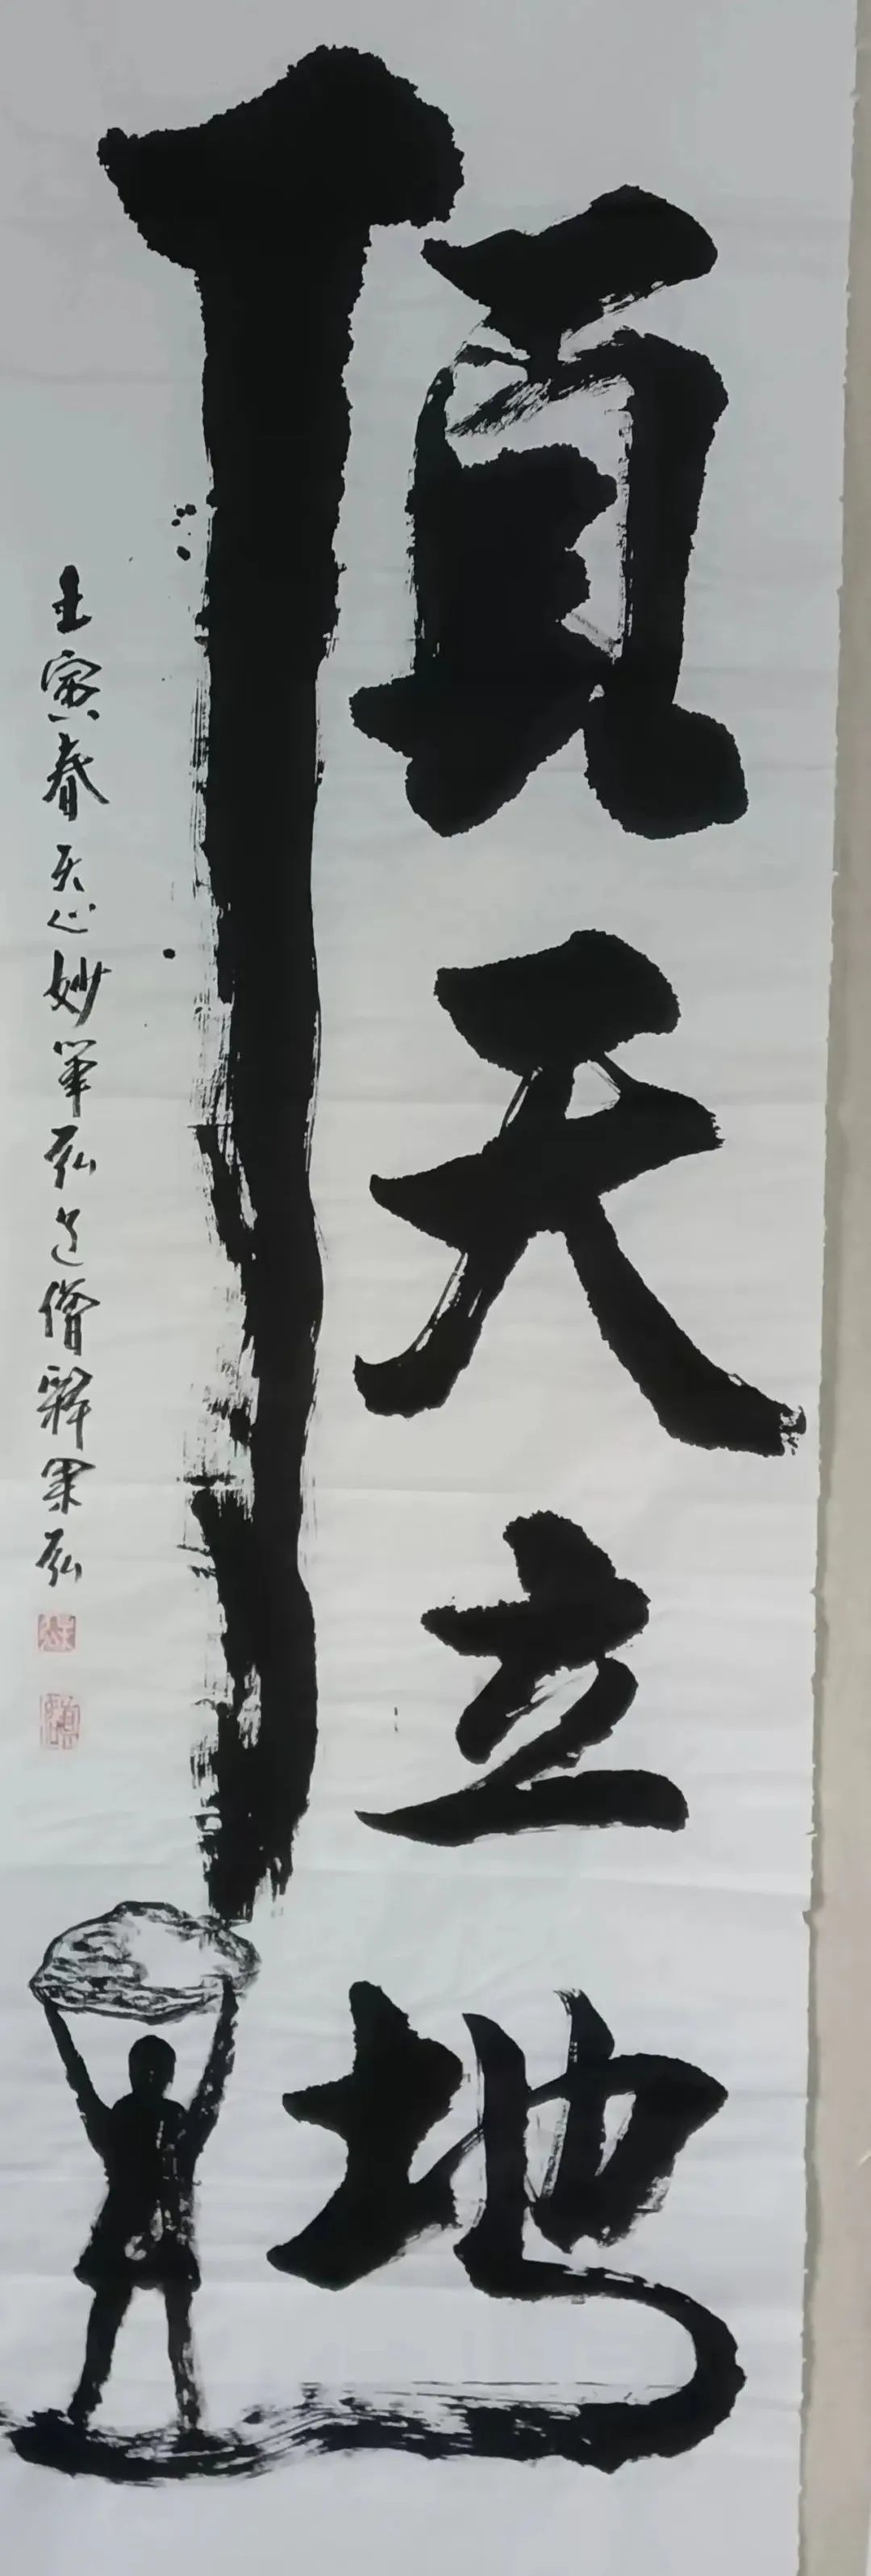 頂天立地
壬寅春天心妙筆弘道僧釋果弘